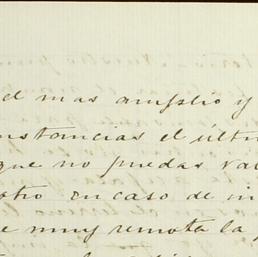 el mas amplio y
nstancias el últi
que no puedas val
otro en caso de in
e muy remota la